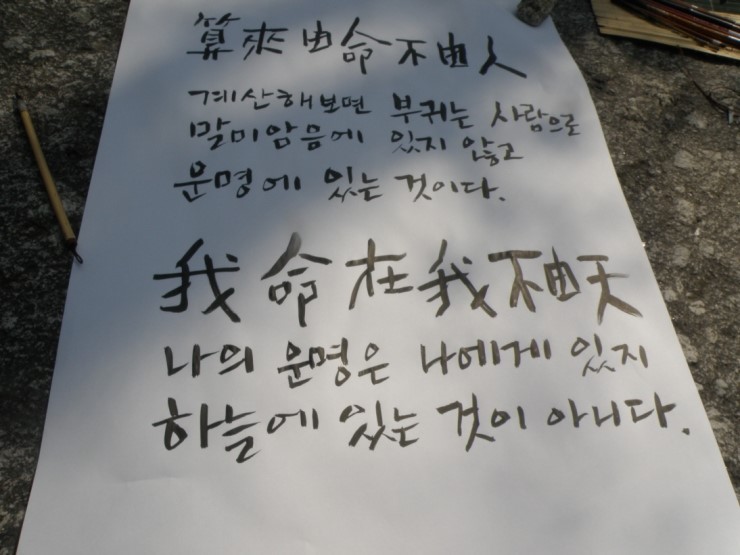 算來由命不由人
계산해보면 부귀는 사람으로
말미암음에 있지 않고
운명에 있는 것이다.
我命在我不由天
나의 운명은 나에게 있지
하늘에 있는 것이 아니다.